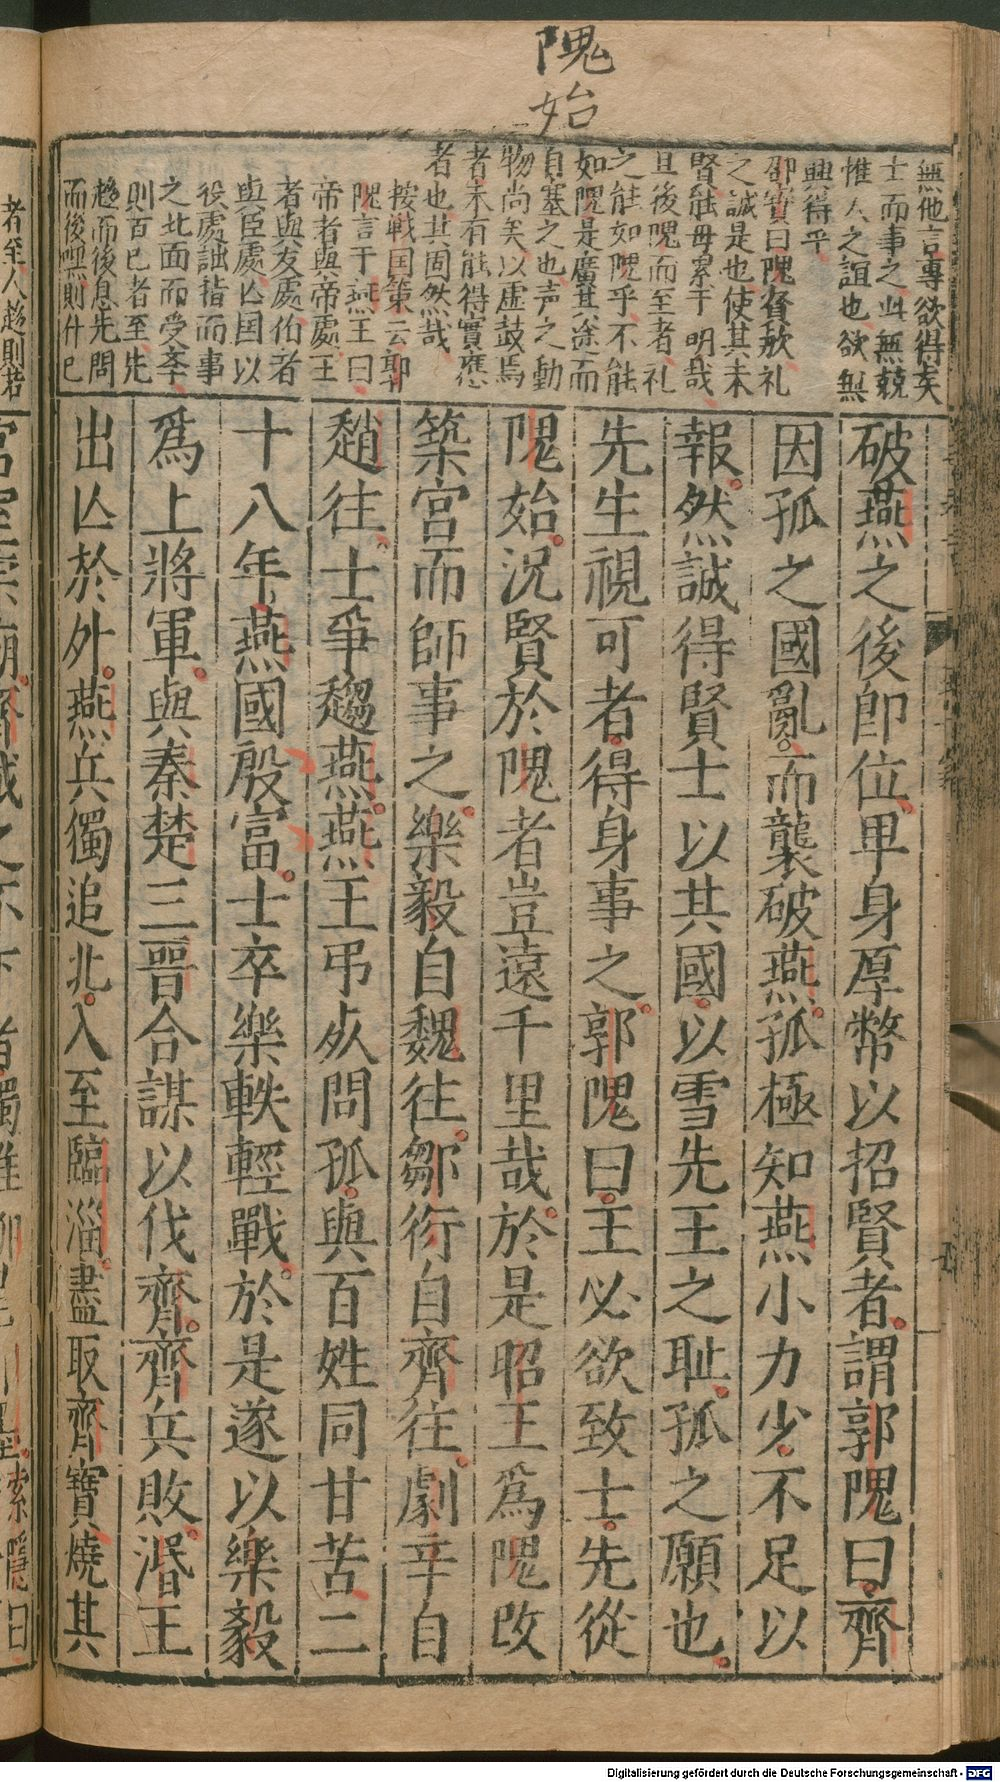 隗
始
無他言專欲得美
士而事之此無兢
惟人之誼也欲無
興得乎
邵寶曰隗賓於礼
之誠是也使其未
賢能毋累于明哉
且後隗而至者礼
之能如隗乎不能
如隗是廣其途而
自塞之也声之動
物尚矣以虛鼓焉
者未有能得實應
者也其固然哉
按戦国策云郭
隗言于燕王曰
帝者與帝處王
者與友處伯者
與臣處亾国以
役處詘指而事
之北面而受李
則百已者至先
趍而後息先問
而後嘿則什已
破燕之後卽位卑身厚幣以招賢者謂郭隗曰齊
因孤之國亂而襲破燕孤極知燕小力少不足以
報然誠得賢士以其國以雪先王之恥孤之願也
先生視可者得身事之郭隗曰王必欲致士先從
隗始況賢於隗者豈遠千里哉於是昭王爲隗改
築宮而師事之樂毅自魏往鄒衍自齊往劇辛自
趙往士爭趨燕燕王弔死問孤與百姓同甘苦二
十八年燕國殷富士卒樂軼輕戰於是遂以樂毅
爲上將軍與秦楚三晉合謀以伐齊齊兵敗湣王
出亾於外燕兵獨追北入至臨淄盡取齊寶燒其
者至人趍則若
Digitalisierung gefördert durch die Deutsche Forschungsgemeinschaft - DFG